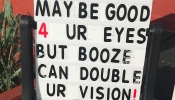 MAY BE GOOD
4 UR EYES
BUT BOOZE
CAN DOUBLE
UR VISION!